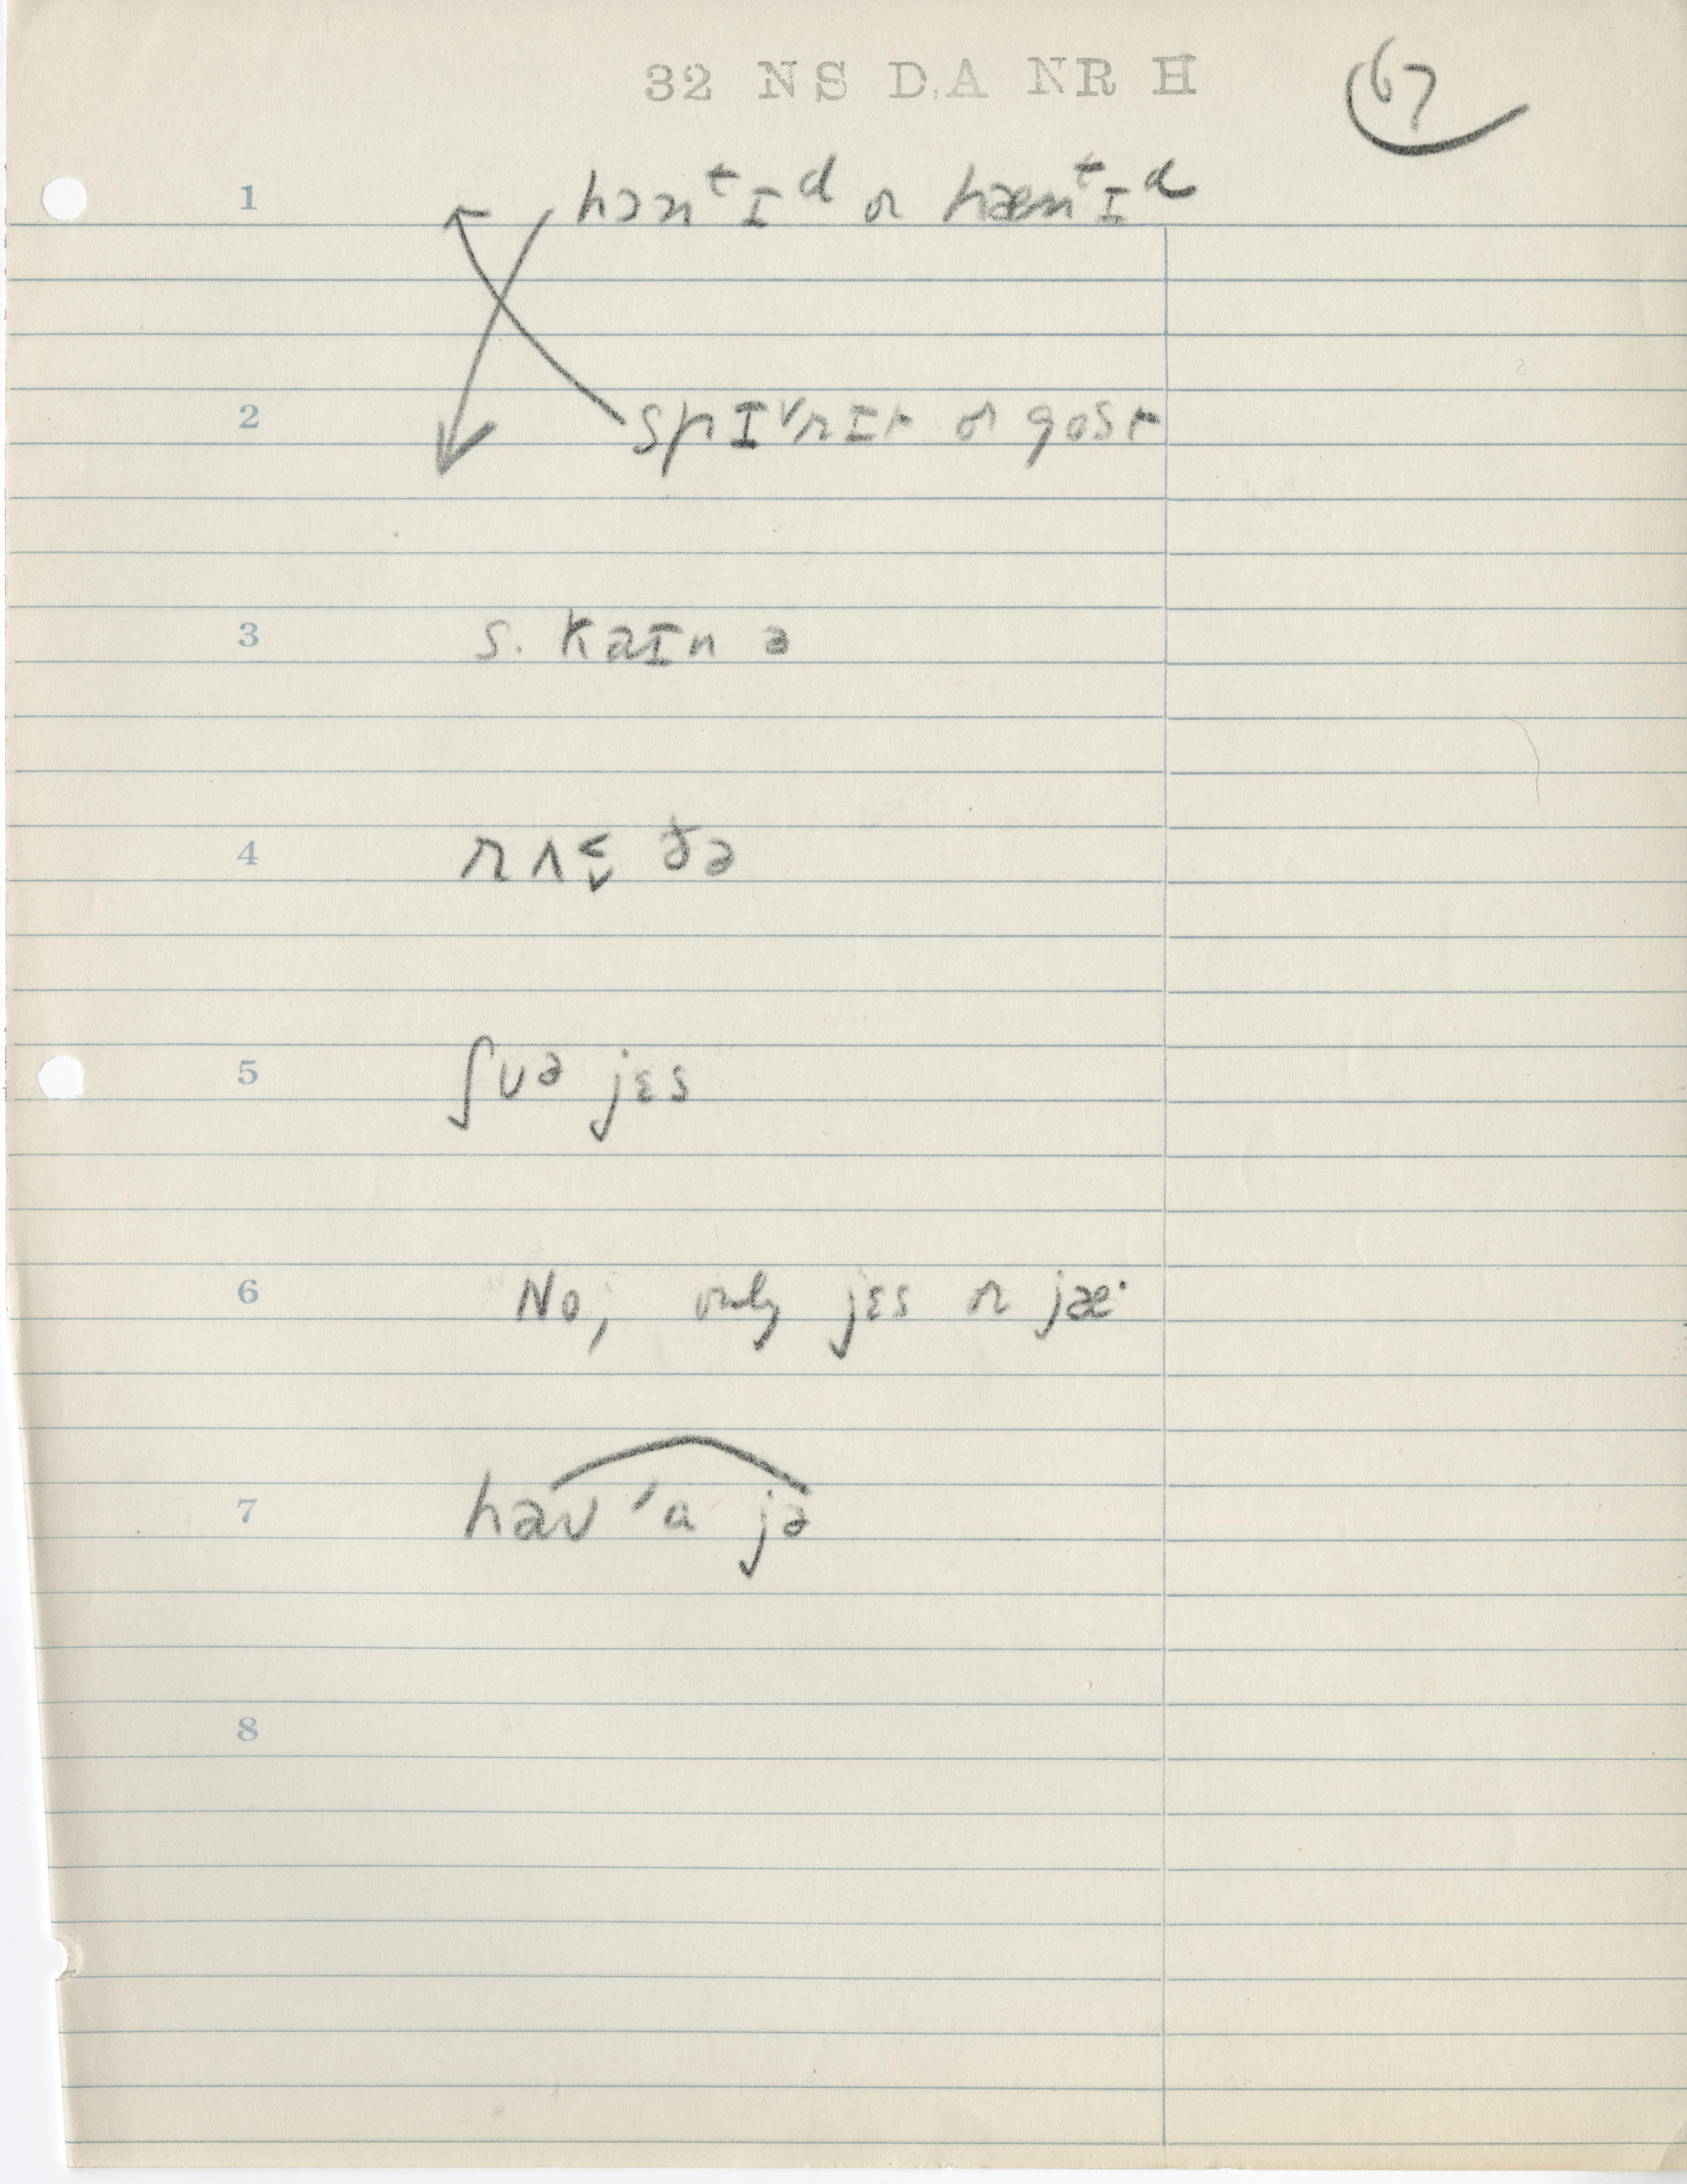 32 NS D.A NR H
67
1 hɔnᵗɪᵈ or hænᵗɪᵈ
2 spɪ˅rɪt or gost
3 s. kaɪn ə
4 rʌ ðə
5 ʃʊə jɛs
6 No, only jɛs or jæ·
7 haʊ 'a jə
8